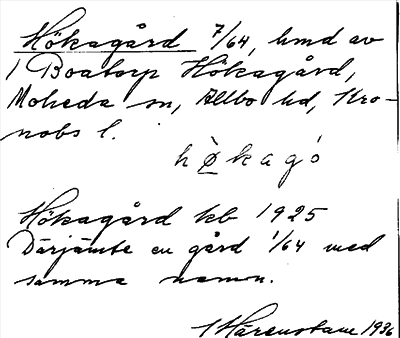 Hökagård 7/64, hmd av
1 Boatorp Hökagård,
Moheda sn, Allbo hd, Kro-
nobs l.
hø̠kagó
Hökagård kb 1925
Därjämte en gård 1/64 med
samma namn.
1936